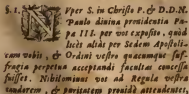 §. 1. NVper S. in Christo P. & D. N. D.
Paulo diuina prouidentia Pa
pa III. per vos exposito, quòd
licèt aliàs per Sedem Apostoli-
cam vobis, & Ordini vestro quæcumque suf-
fragia perpetua acceptandi facultas concessa
fuisset. Nihilominus vos ad Regulæ vestræ
candorem, & puritatem prouidè attendentes